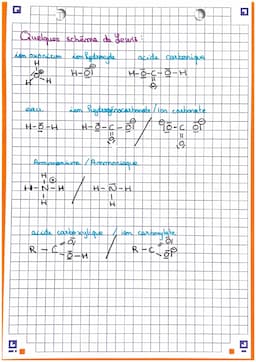 Quelques schéma de Lewis :
ion oxonium ion hydroxyde acide carbonique
H
H-O-H H-O H-O-C-O-H
O
eau ion hydrogénocarbonate / ion carbonate
H-O-H H-O-C-O / O-C O
O O
Ammonium / Ammoniaque
H
H-N-H / H-N-H
H H
acide carboxylique / ion carboxylate
R-C O / R-C O
O-H O